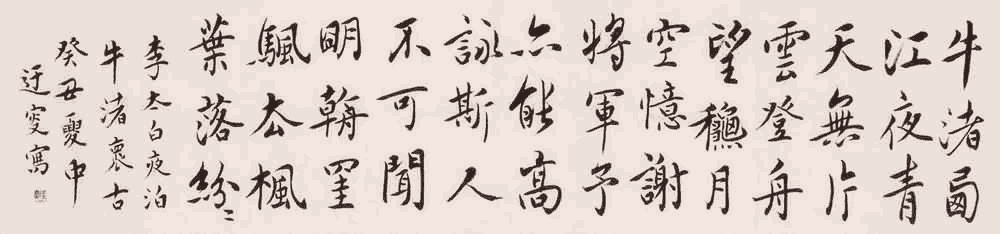 牛渚卥
江夜青
天無片
雲登舟
望穐月
空憶謝
將軍予
亦能高
詠斯人
不可聞
明朝罣
颿去楓
葉落紛〻
李太白夜泊
牛渚褱古
癸丑夏中
迂叟寫